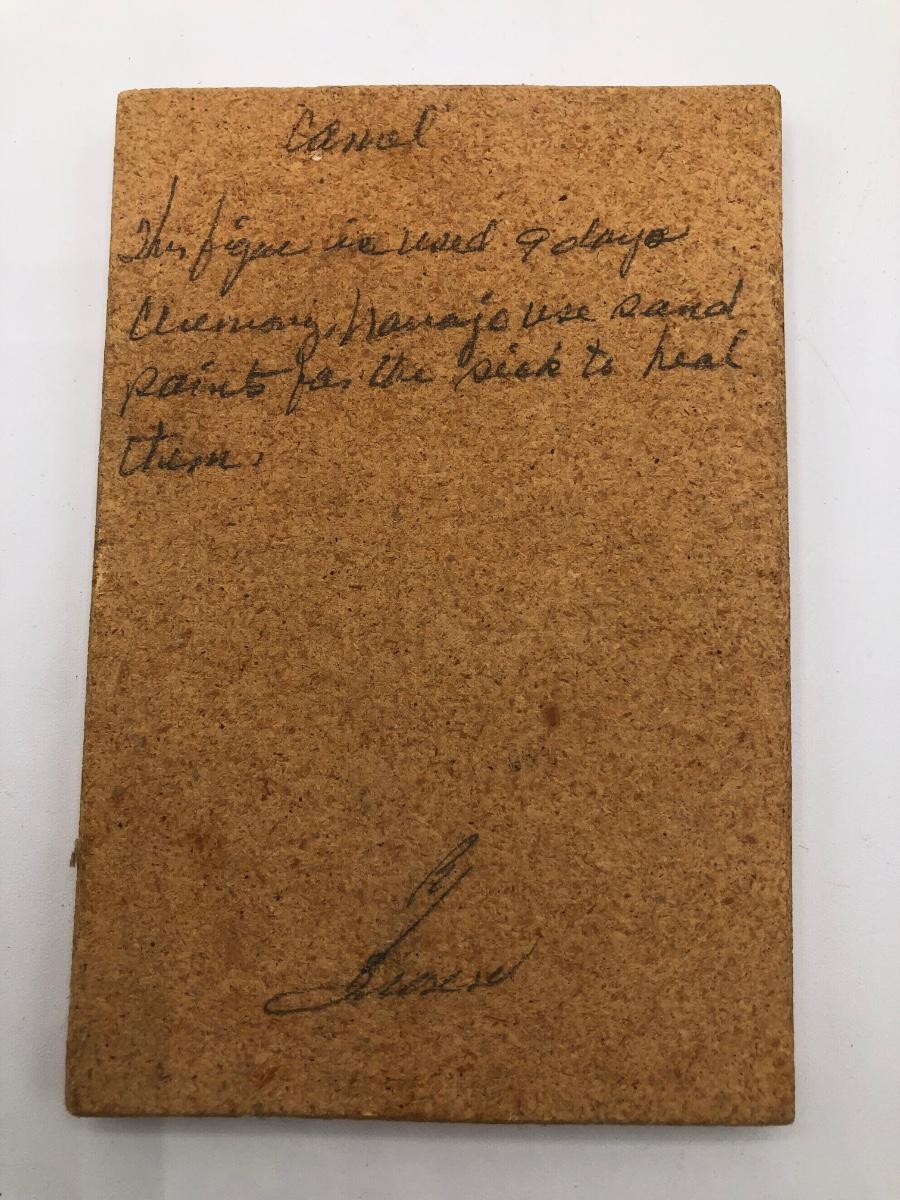 Camel
This figue is used 9 days
Ceremony, Navajo use sand
paints for the sick to heal
them.
By